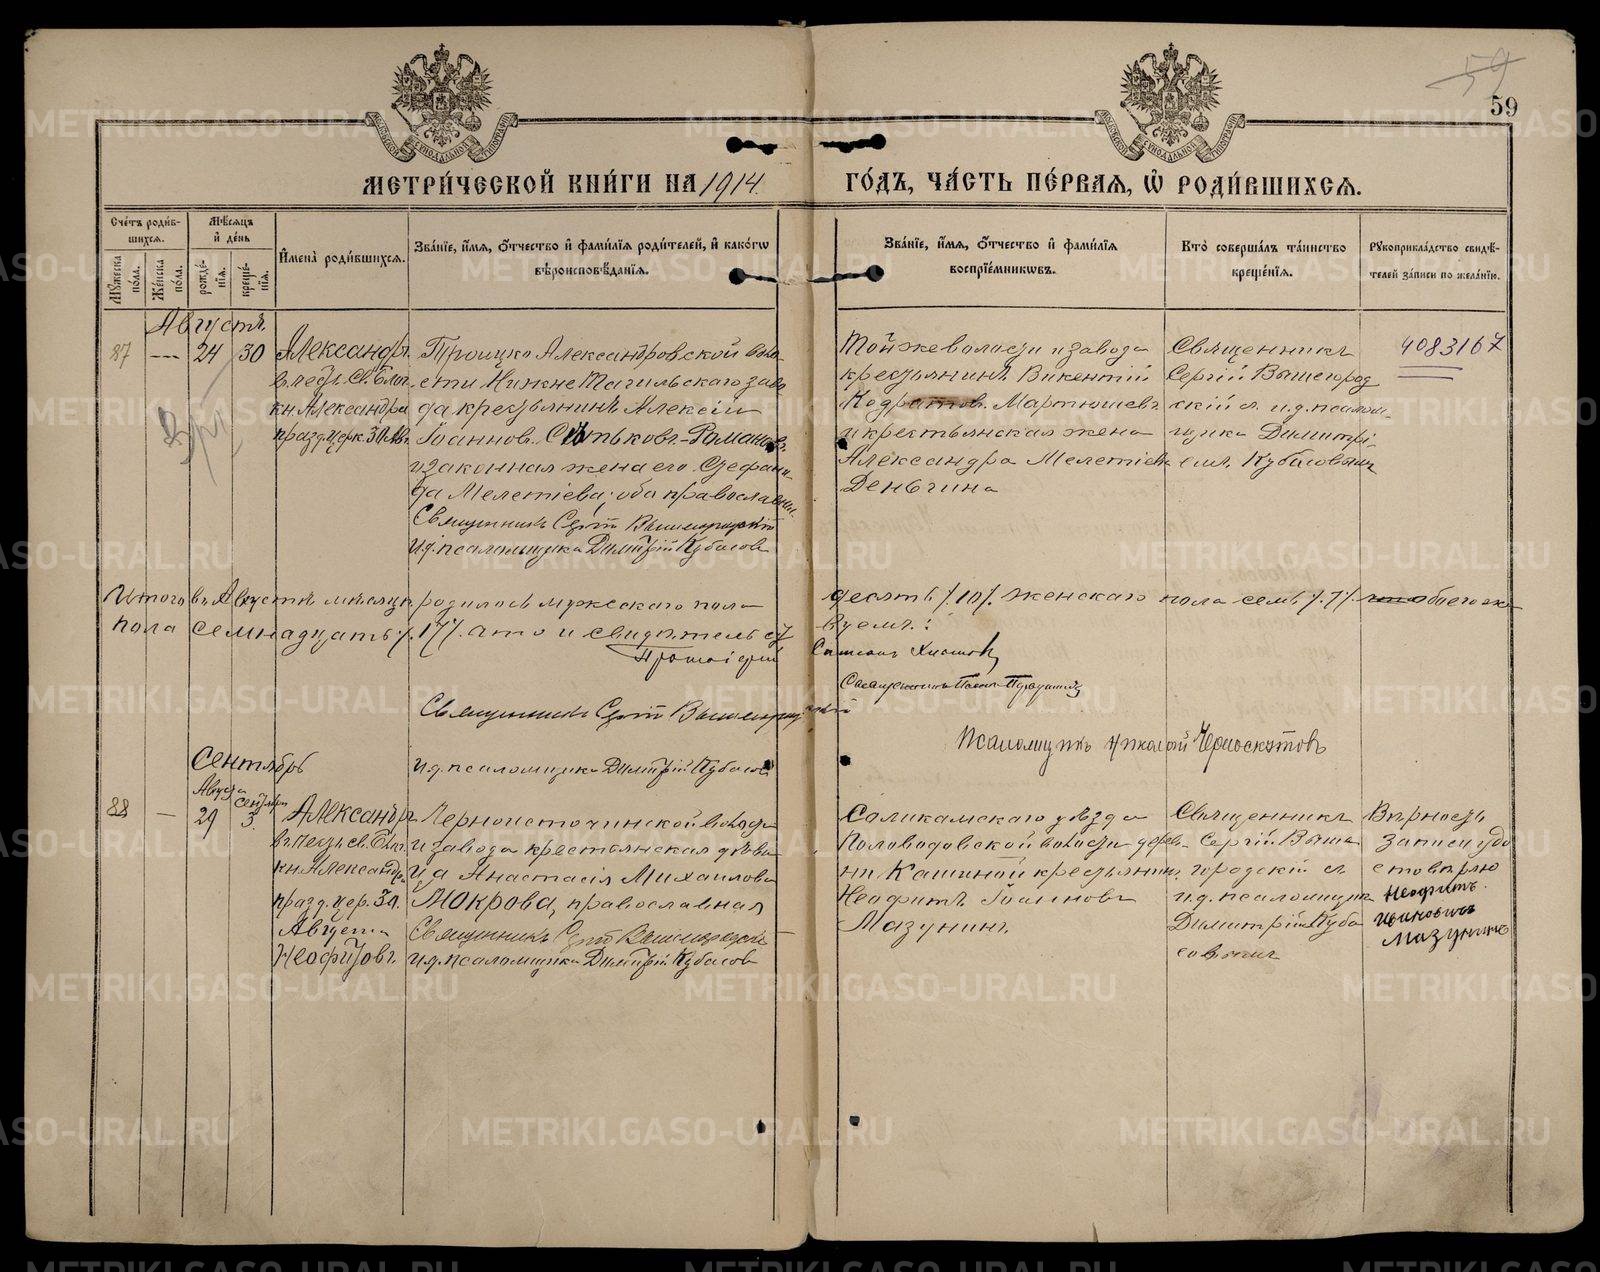 59
59
МЕТРИ́ЧЕСКОЙ КНИ́ГИ НА 1914.
ГО́ДЪ, ЧА́СТЬ ПЕ́РВАЯ, Ѡ РОДИ́ВШИХСЯ.
Сче́тъ роди́в-
шихся.
Мѣ́сяцъ
и де́нь
Му́жеска по́ла.
Же́нска по́ла.
рожде́-нія.
креще́-нія.
Имена̀ роди́вшихся.
Зва́ніе, и́мя, о́тчество и фами́лія роди́телей, и како́гѡ
вѣроисповѣ́данія.
Зва́ніе, и́мя, о́тчество и фами́лія
воспріе́мниковъ.
Кто̀ соверша́лъ та́инство
креще́нія.
Рукоприкла́дство свидѣ́-
телей за́писи по жела́нію.
Августъ
87
24
30
Александръ
въ честь св. Благ.
кн. Александра
празд. церк. 30 Авг.
Троицко Александровской воло
сти Нижне Тагильскаго заво
да крестьянинъ Алексій
Іоанновъ Ситьковъ-Романовъ
и законная жена его Стефани
да Мелетіева; оба православн.
Священникъ Сергій Вышегородскій
И.д. псаломщика Димитрій Кубасовъ
Той же волости и завода
крестьянинъ Викентій
Кодратовъ Мартюшевъ
и крестьянская жена
Александра Мелетіева
Деньгина
Священникъ
Сергій Вышегород
скій с и.д. псалом
щика Димитрі
емъ Кубасовымъ
4083167
Итого въ Августѣ мѣсяцѣ родилось мужескаго пола
десять /.10/. женскаго пола семь /.7/. обоего же
пола семнадцать /.17/. что и свидѣтельст
вуемъ:
Протоіерей
Священникъ
Священникъ Сергій Вышегород
скій
Псаломщикъ Николай Черноскутовъ
И.д. псаломщика Димитрій Кубасовъ
Сентябрь
Августа
Сентября
88
29
3.
Александръ
въ честь св. Благ.
кн. Александра
празд. цер. 30.
Августа
Неофитовъ
Черноисточинской волости
и завода крестьянская дѣви
ца Анастасія Михаилова
Мокрова, православная
Священникъ Сергій Вышегородскій
И.д. псаломщика Димитрій Кубасов
Соликамскаго уѣзда
Половодовской волости дерев
ни Кашиной крестьянинъ
Неофитъ Іоанновъ
Мазунинъ.
Священникъ
Сергій Выше
городскій съ
и.д. псаломщик
Димитрій Куба
совымъ
Вѣрность
записи удо
стовѣряю
Неофитъ
Ивановичъ
Мазунинъ
METRIKI.GASO-URAL.RU